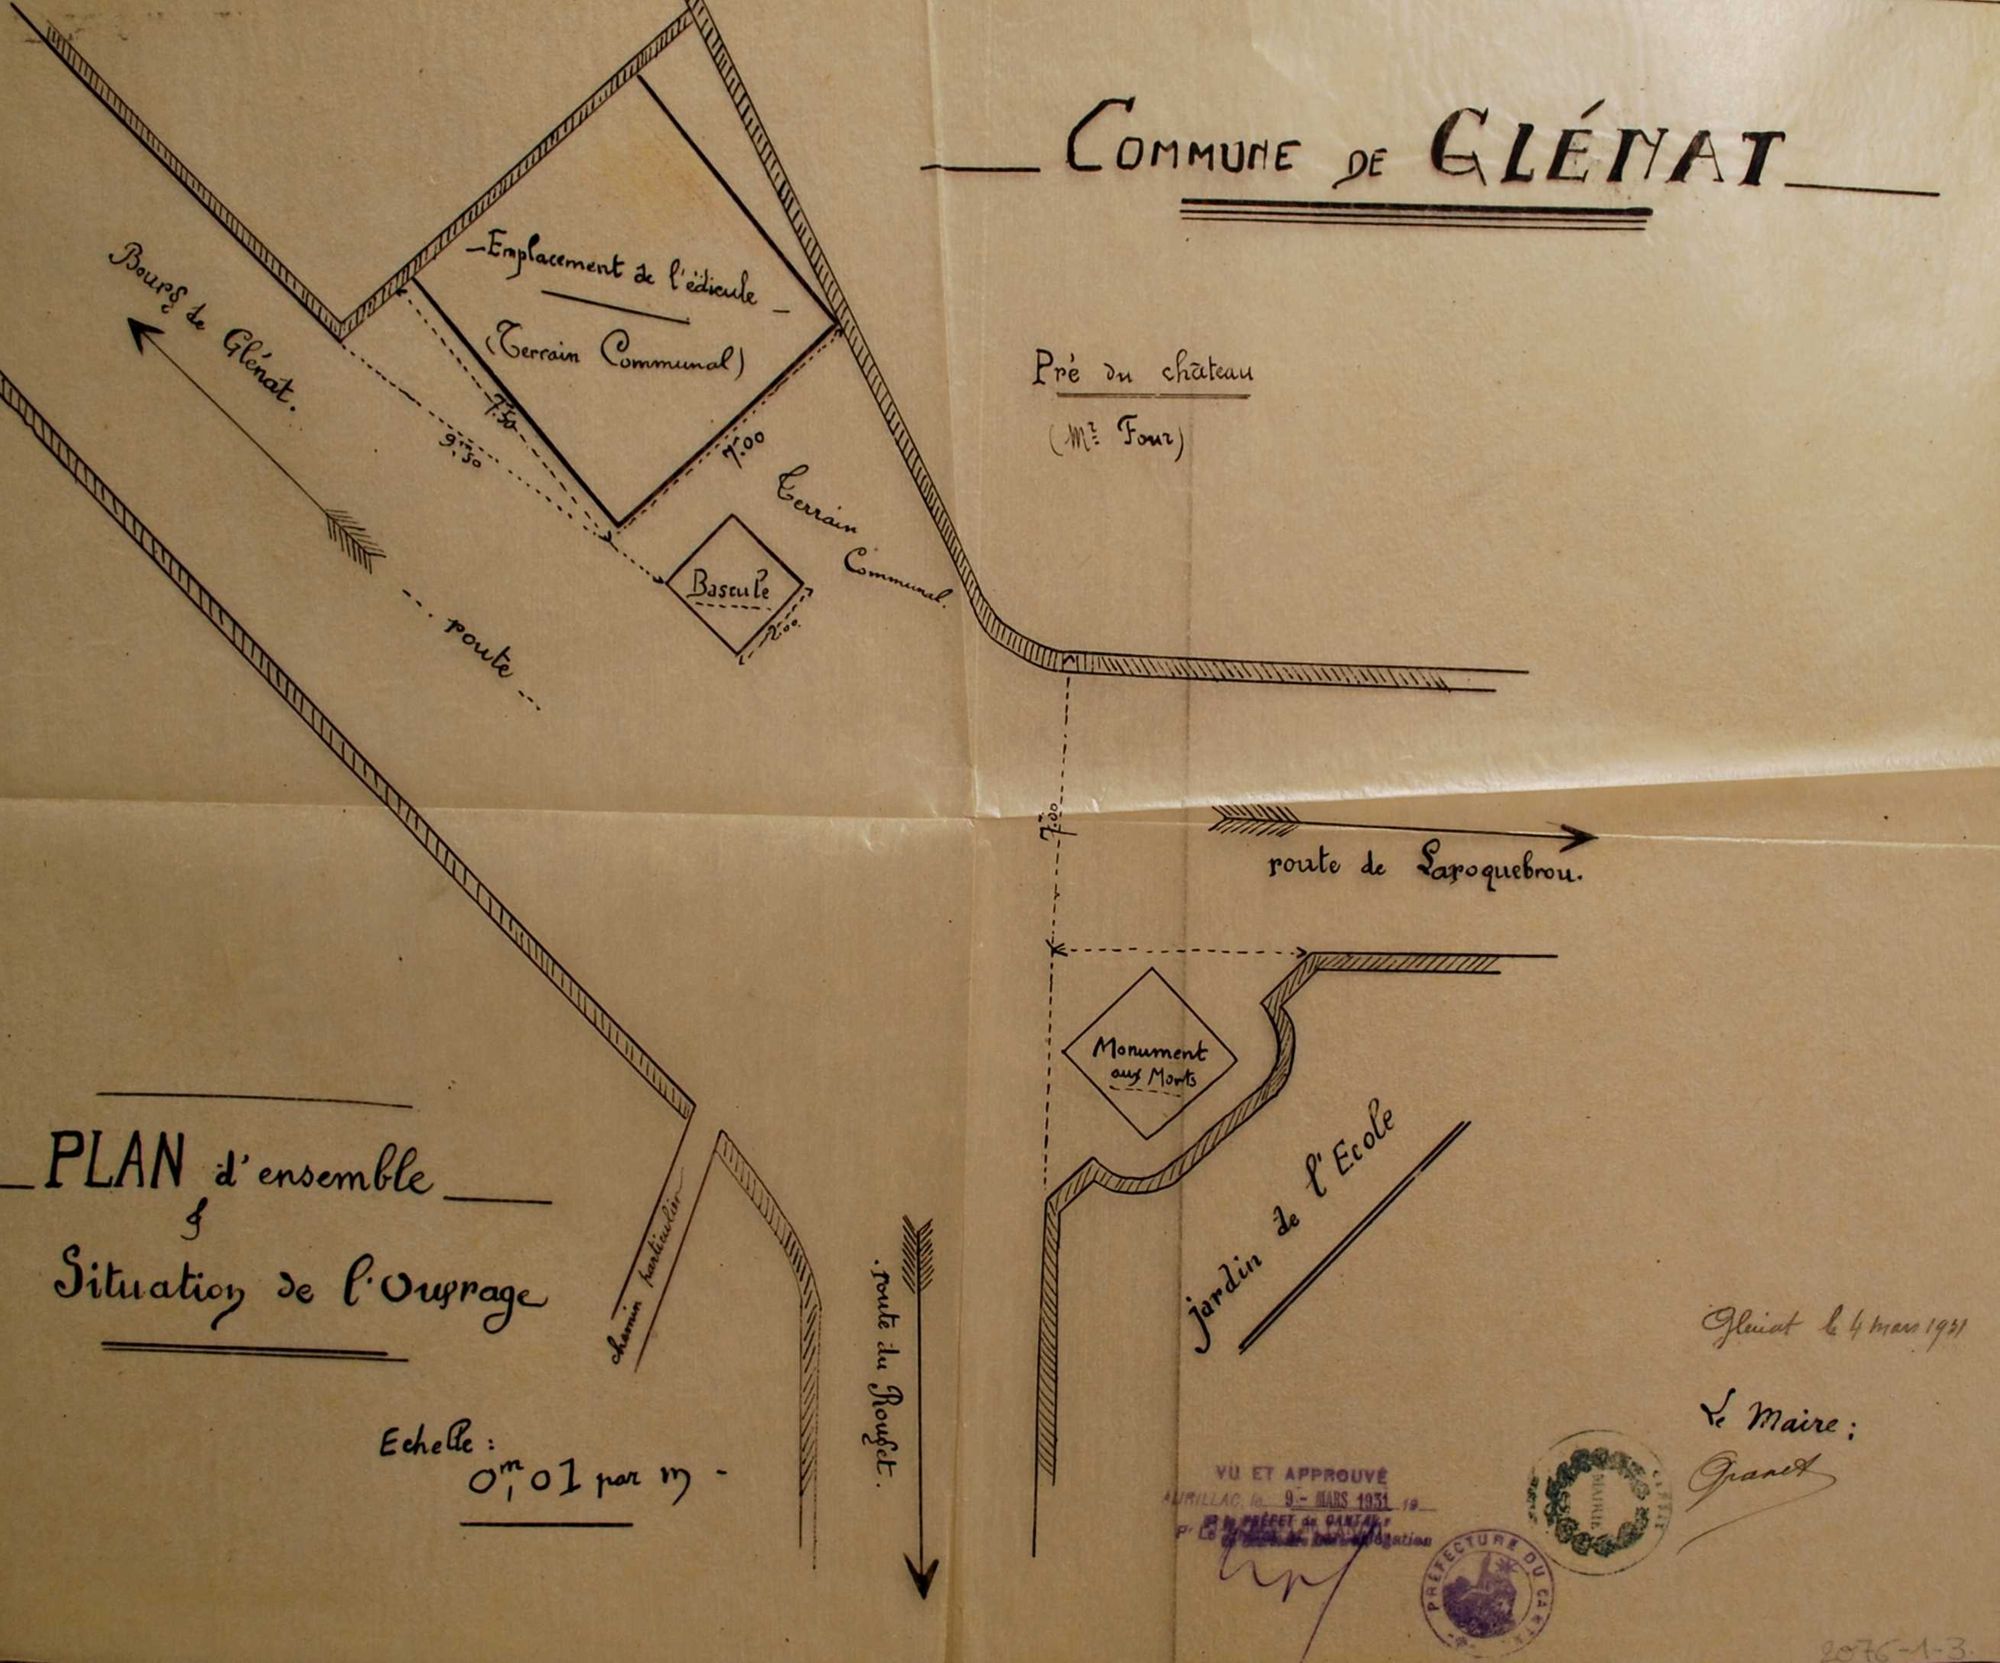 COMMUNE DE GLÉNAT
Bourg de Glénat.
Emplacement de l'édicule
(Terrain Communal)
7,50
9m,50
7,00
Terrain
Communal.
Bascule
2,00
... route ...
Pré du château
(Mr Four)
7,00
route de Laroquebrou.
Monument
aux Morts
jardin de l'Ecole
PLAN d'ensemble
&
Situation de l'Ouvrage
Echelle :
0m,01 par m
chemin particulier
route du Rouget.
Glénat le 4 mars 1931
Le Maire :
MAIRIE
VU ET APPROUVÉ
AURILLAC, le 9 - MARS 1931 19
PRÉFET du CANTAL
Pr Le
PRÉFECTURE DU CANTAL
2076-1-3